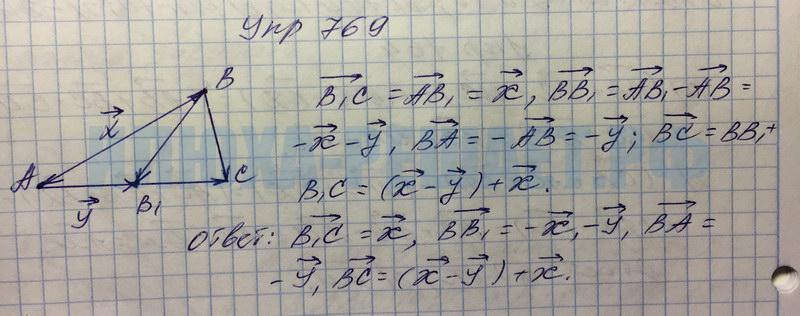 Упр 769
B
x⃗
A
y⃗
B₁
C
B₁C⃗ = AB₁⃗ = x⃗, BB₁⃗ = AB₁⃗ - AB⃗ =
- x⃗ - y⃗, BA⃗ = - AB⃗ = - y⃗; BC⃗ = BB₁ +
B₁C = (x⃗ - y⃗) + x⃗.
Ответ: B₁C⃗ = x⃗, BB₁⃗ = - x⃗, - y⃗, BA⃗ =
- y⃗, BC⃗ = (x⃗ - y⃗) + x⃗.